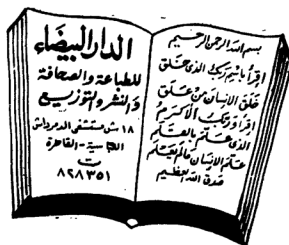 بسم الله الرحمن الرحيم
اقرأ باسم ربك الذى خلق
خلق الانسان من علق
اقرأ وربك الأكرم
الذى علم بالقلم
علم الانسان مالم يعلم
صدق الله العظيم
الدار البيضاء
للطباعة والصحافة
والنشر والتوزيع
١٨ ش مستشفى الدمرداش
العباسية - القاهرة
ت
٨٢٨٣٥١